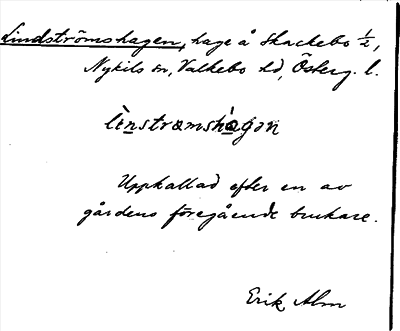 Lindströmshagen, hage å Skackebo ½,
Nykils sn, Valkebo hd, Österg. l.
lìnstrœmshàgɔn
Uppkallad efter en av
gårdens föregående brukare.
Erik Alm